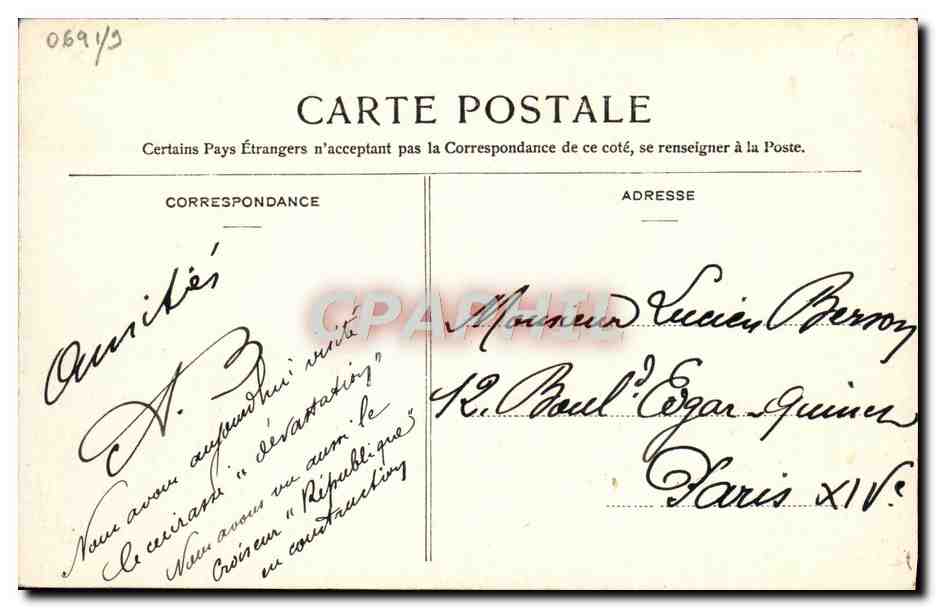 0691/9
CARTE POSTALE
Certains Pays Étrangers n'acceptant pas la Correspondance de ce coté, se renseigner à la Poste.
CORRESPONDANCE
Amitiés
A. B
Nous avons aujourd'hui visité
le cuirassé "dévastation"
Nous avons vu aussi le
Croiseur "République"
en construction
ADRESSE
Monsieur Lucien Berson
12. Boul.d Edgar-Quinet
Paris XIVe
CPAPHIL